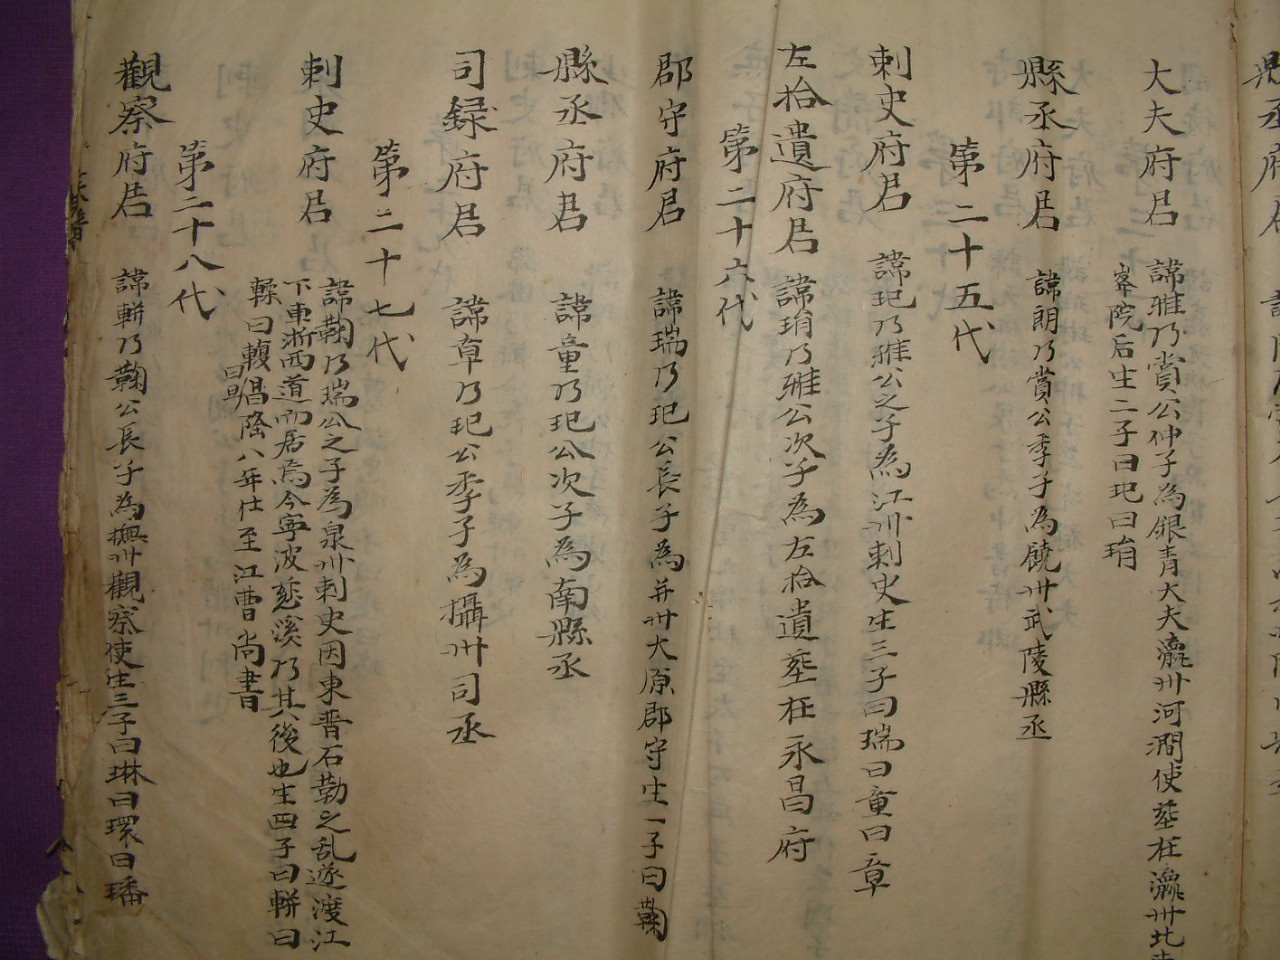 縣丞府君
大夫府君 諱雅乃賞公仲子為銀青大夫瀛州河澗使葬在瀛州北
峯院后生二子曰玘曰琄
縣丞府居 諱朗乃賞公季子為饒州武陵縣丞
第二十五代
刺史府君 諱玘乃雅公之子為江州刺史生三子曰瑞曰童曰章
左拾遺府居 諱琄乃雅公次子為左拾遺葬在永昌府
第二十六代
郡守府君 諱瑞乃玘公長子為并州大原郡守生一子曰鞠
縣丞府君 諱童乃玘公次子為南縣丞
司録府君 諱章乃玘公季子為攝州司丞
第二十七代
刺史府居 諱鞠乃瑞公之子為泉州刺史因東晋石勒之乱遂渡江
下車浙西道而居焉今寧波慈溪乃其後也生四子曰輧曰
輮曰輹曰 昌隆八年仕至江曹尚書
第二十八代
觀察府居 諱輧乃鞠公長子為撫州觀察使生三子曰琳曰環曰璠